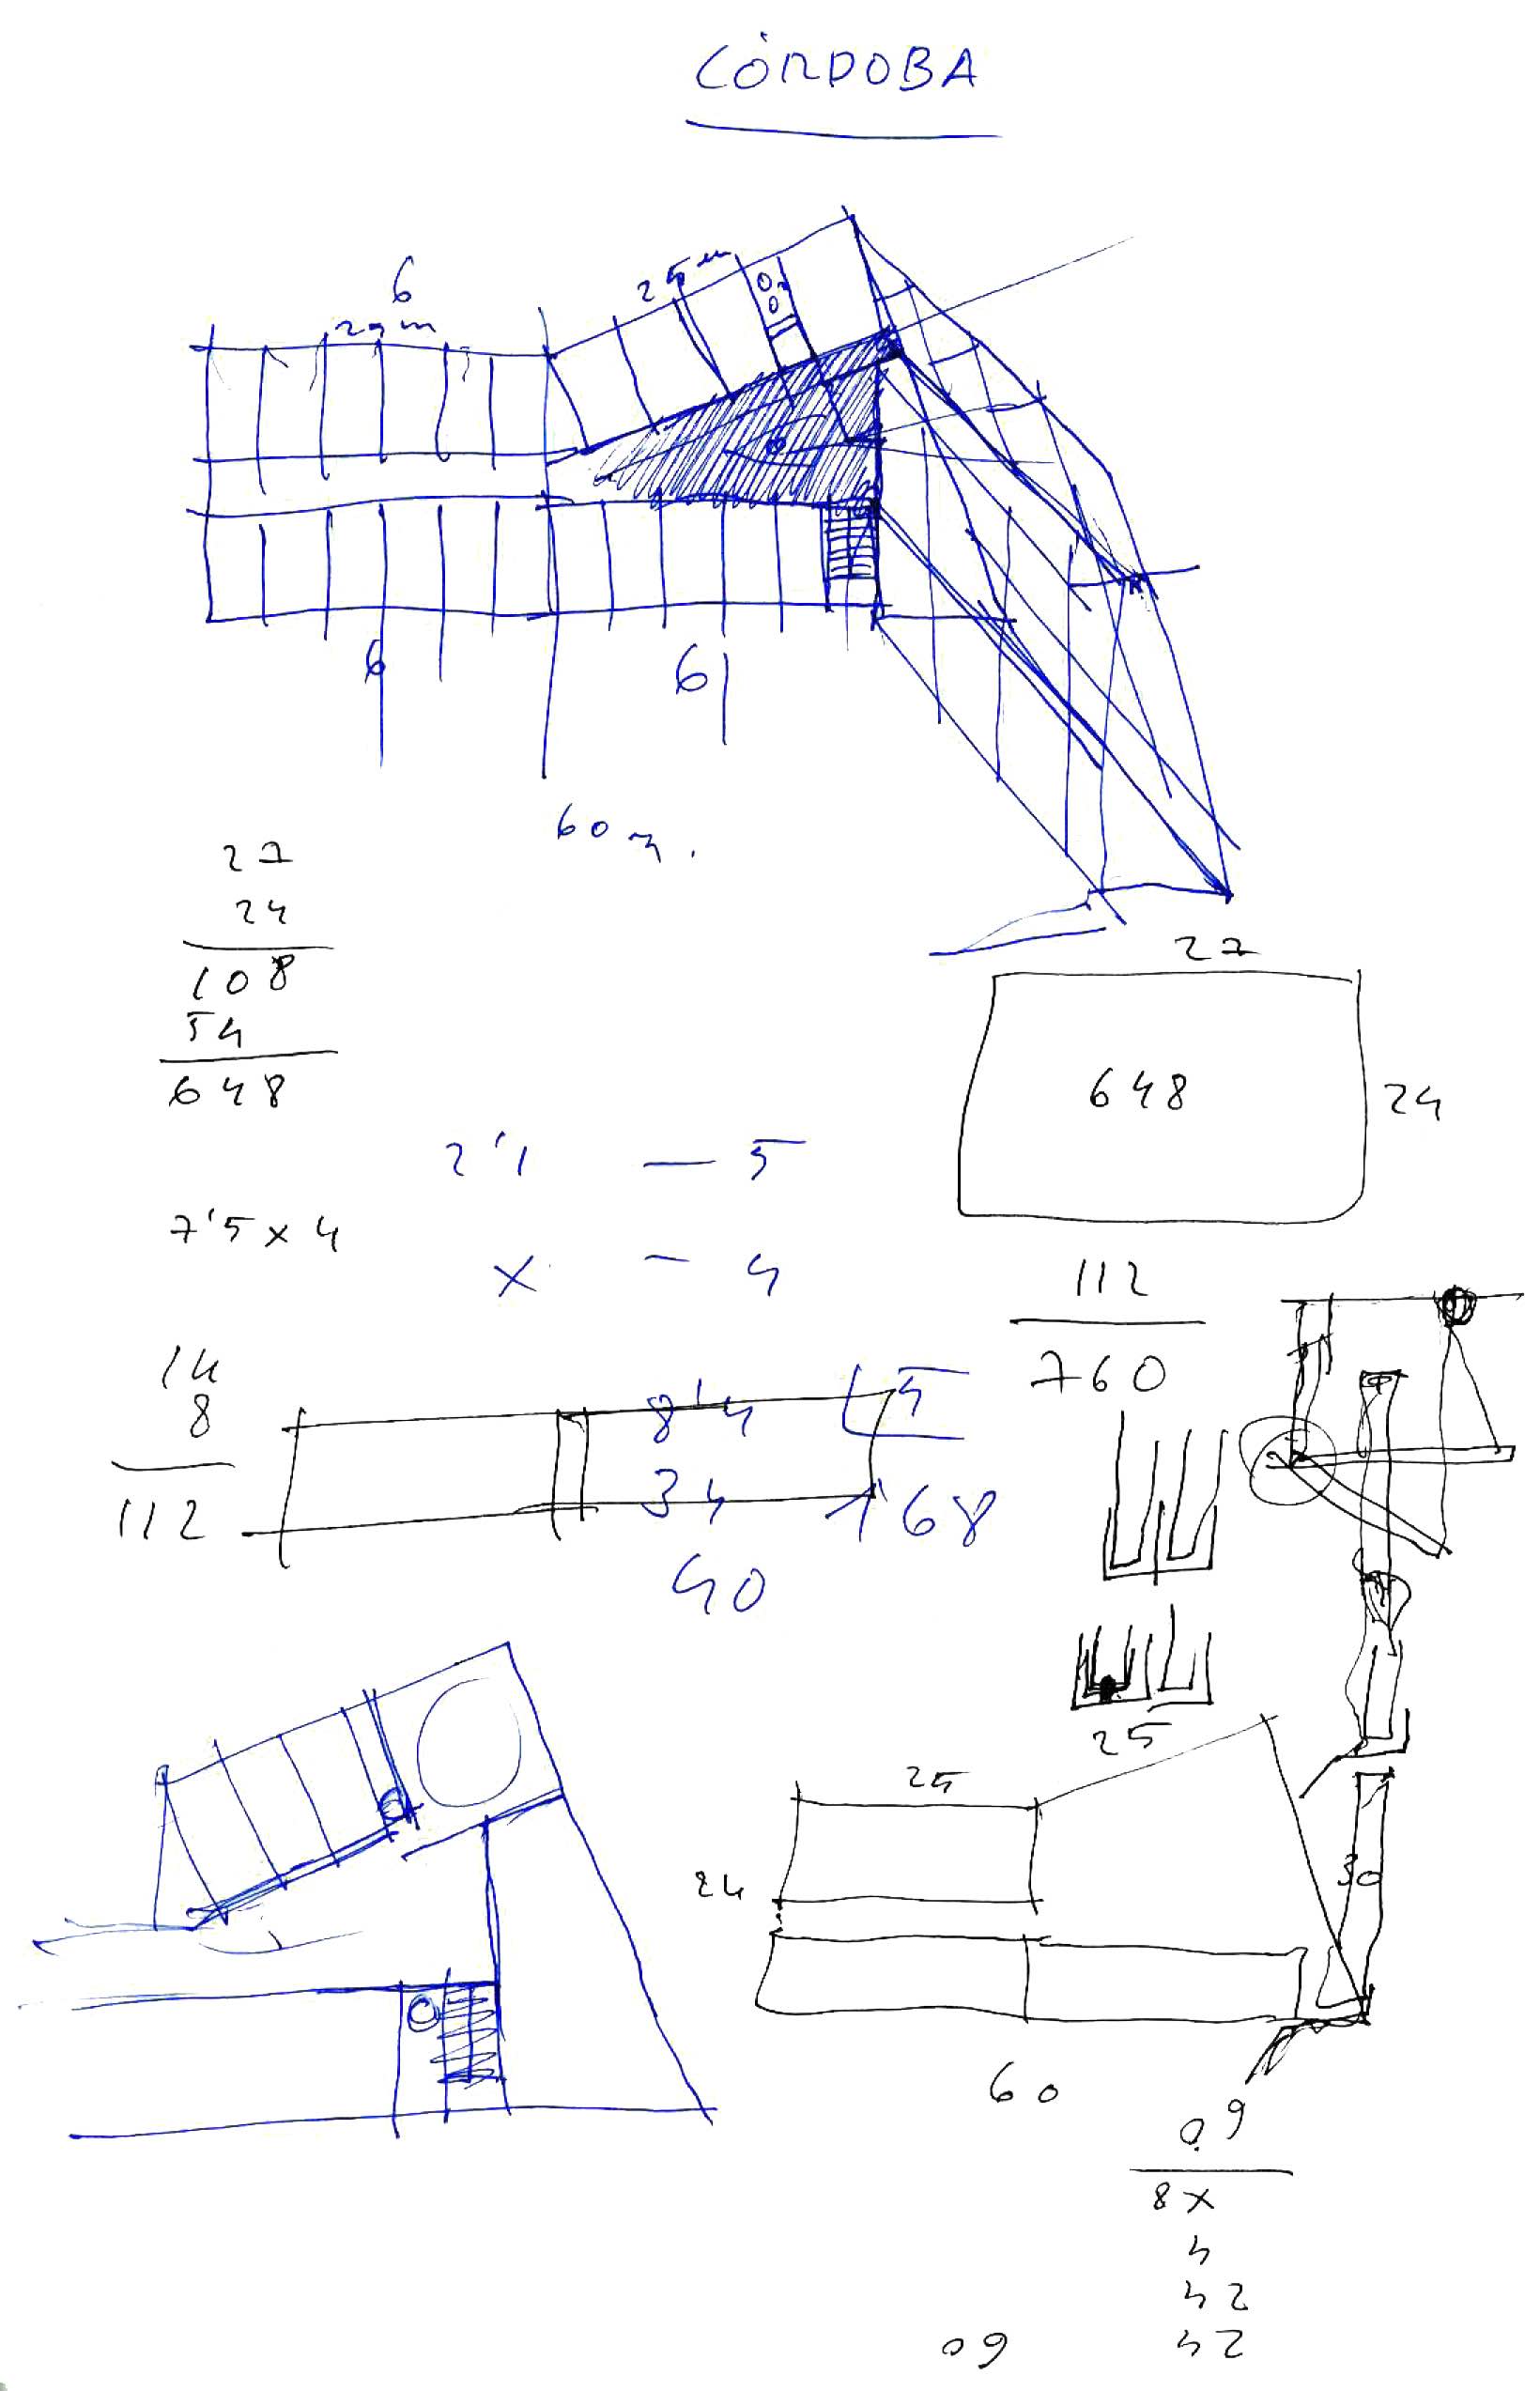 CÓRDOBA
6
25 m
6
6
60 m.
27
24
108
54
648
27
648
24
2'1 — 5
7'5 x 4
x — 4
112
760
14
8
112
8'4
5
34
1'68
40
25
25
24
30
60